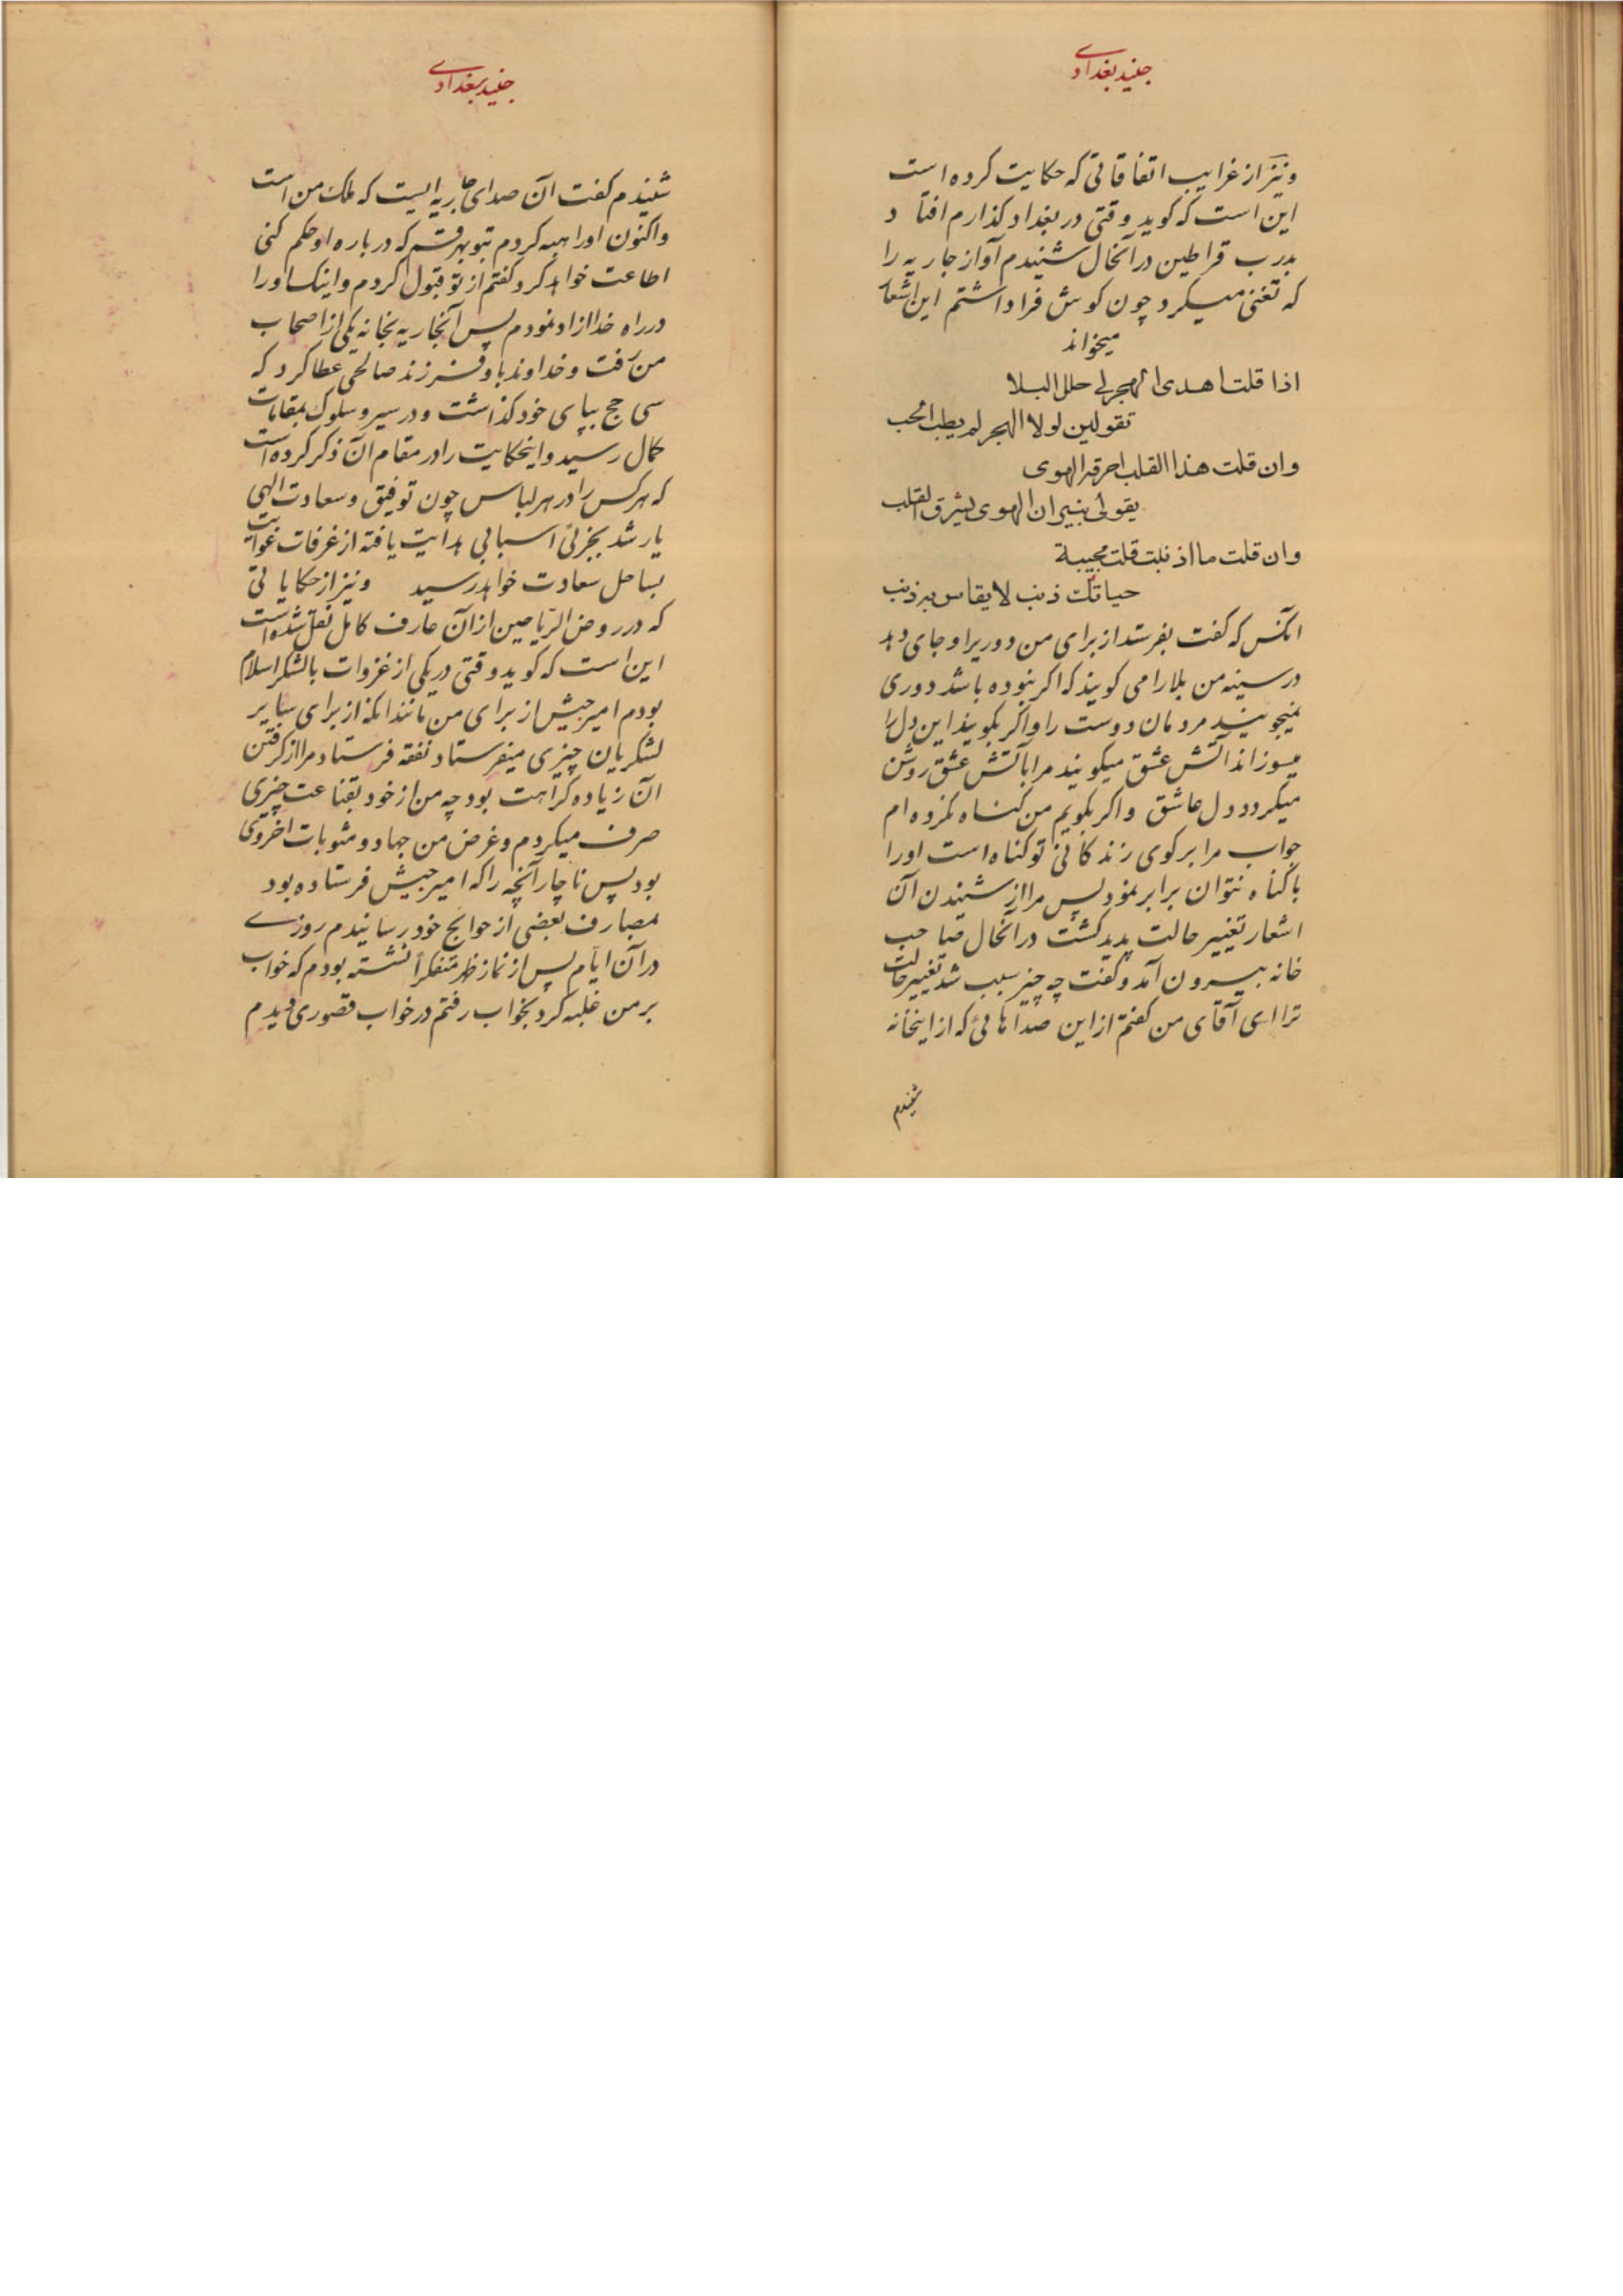 جنید بغدادی
و نیز از غرایب اتفاقاتی که حکایت کرده است
این است که کوید وقتی در بغداد کذارم افتاد
بدرب قراطین در آنحال شنیدم آواز جاریه را
که تغنی میکرد چون کوش فرا داشتم این اشعار
میخواند
اذا قلت اهدی الهجر لی حلل البلا
تقولین لولا الهجر لم یطب الحب
وان قلت هذا القلب احرقه الهوی
یقولی بنیران الهوی یشرق القلب
وان قلت ما اذنبت قلت مجیبة
حیاتك ذنب لا یقاس به ذنب
آنکس که کفت بفرستد از برای من دوریرا و جای دهد
در سینه من بلا را می کویند که اکر نبوده باشد دوری
نمیجویند مردمان دوست را و اکر بکویند این دل را
میسوزاند آتش عشق میکویند مرا بآتش عشق روشن
میکردد دل عاشق و اکر بکویم من کناه نکرده ام
جواب مرا بر کوی زندکانی تو کناه است او را
با کناه نتوان برابر نمود پس مرا از شنیدن آن
اشعار تغییر حالت پدید کشت در آنحال صاحب
خانه بیرون آمد و کفت چه چیز سبب شد تغییر حالت
ترا ای آقای من کفتم از این صداهائی که از اینخانه
شنیدم
جنید بغدادی
شنیدم کفت آن صدای جاریه ایست که ملک من است
و اکنون او را هبه کردم بتو بهر قسم که در باره او حکم کنی
اطاعت خواهد کرد کفتم از تو قبول کردم و اینک او را
در راه خدا ازاد نمودم پس آنجاریه بخانه یکی از اصحاب
من رفت و خداوند باو فرزند صالحی عطا کرد که
سی حج بپای خود کذاشت و در سیر و سلوک بمقامات
کمال رسید و اینحکایت را در مقام آن ذکر کرده است
که هر کس را در هر لباس چون توفیق و سعادت الهی
یار شد بجزئی اسبابی هدایت یافته از غرفات غوایت
بساحل سعادت خواهد رسید و نیز از حکایاتی
که در روض الریاحین از آن عارف کامل نقل شده است
این است که کوید وقتی در یکی از غزوات با لشکر اسلام
بودم امیر جیش از برای من مانند آنکه از برای سایر
لشکریان چیزی میفرستاد نفقه فرستاد مرا از کرفتن
آن زیاده کراهت بود چه من از خود بقناعت چیزی
صرف میکردم و غرض من جهاد و مثوبات اخروی
بود پس ناچار آنچه را که امیر جیش فرستاده بود
بمصارف بعضی از حوایج خود رسانیدم روزی
در آن ایام پس از نماز ظهر متفکرا نشسته بودم که خواب
بر من غلبه کرد بخواب رفتم در خواب قصوری دیدم